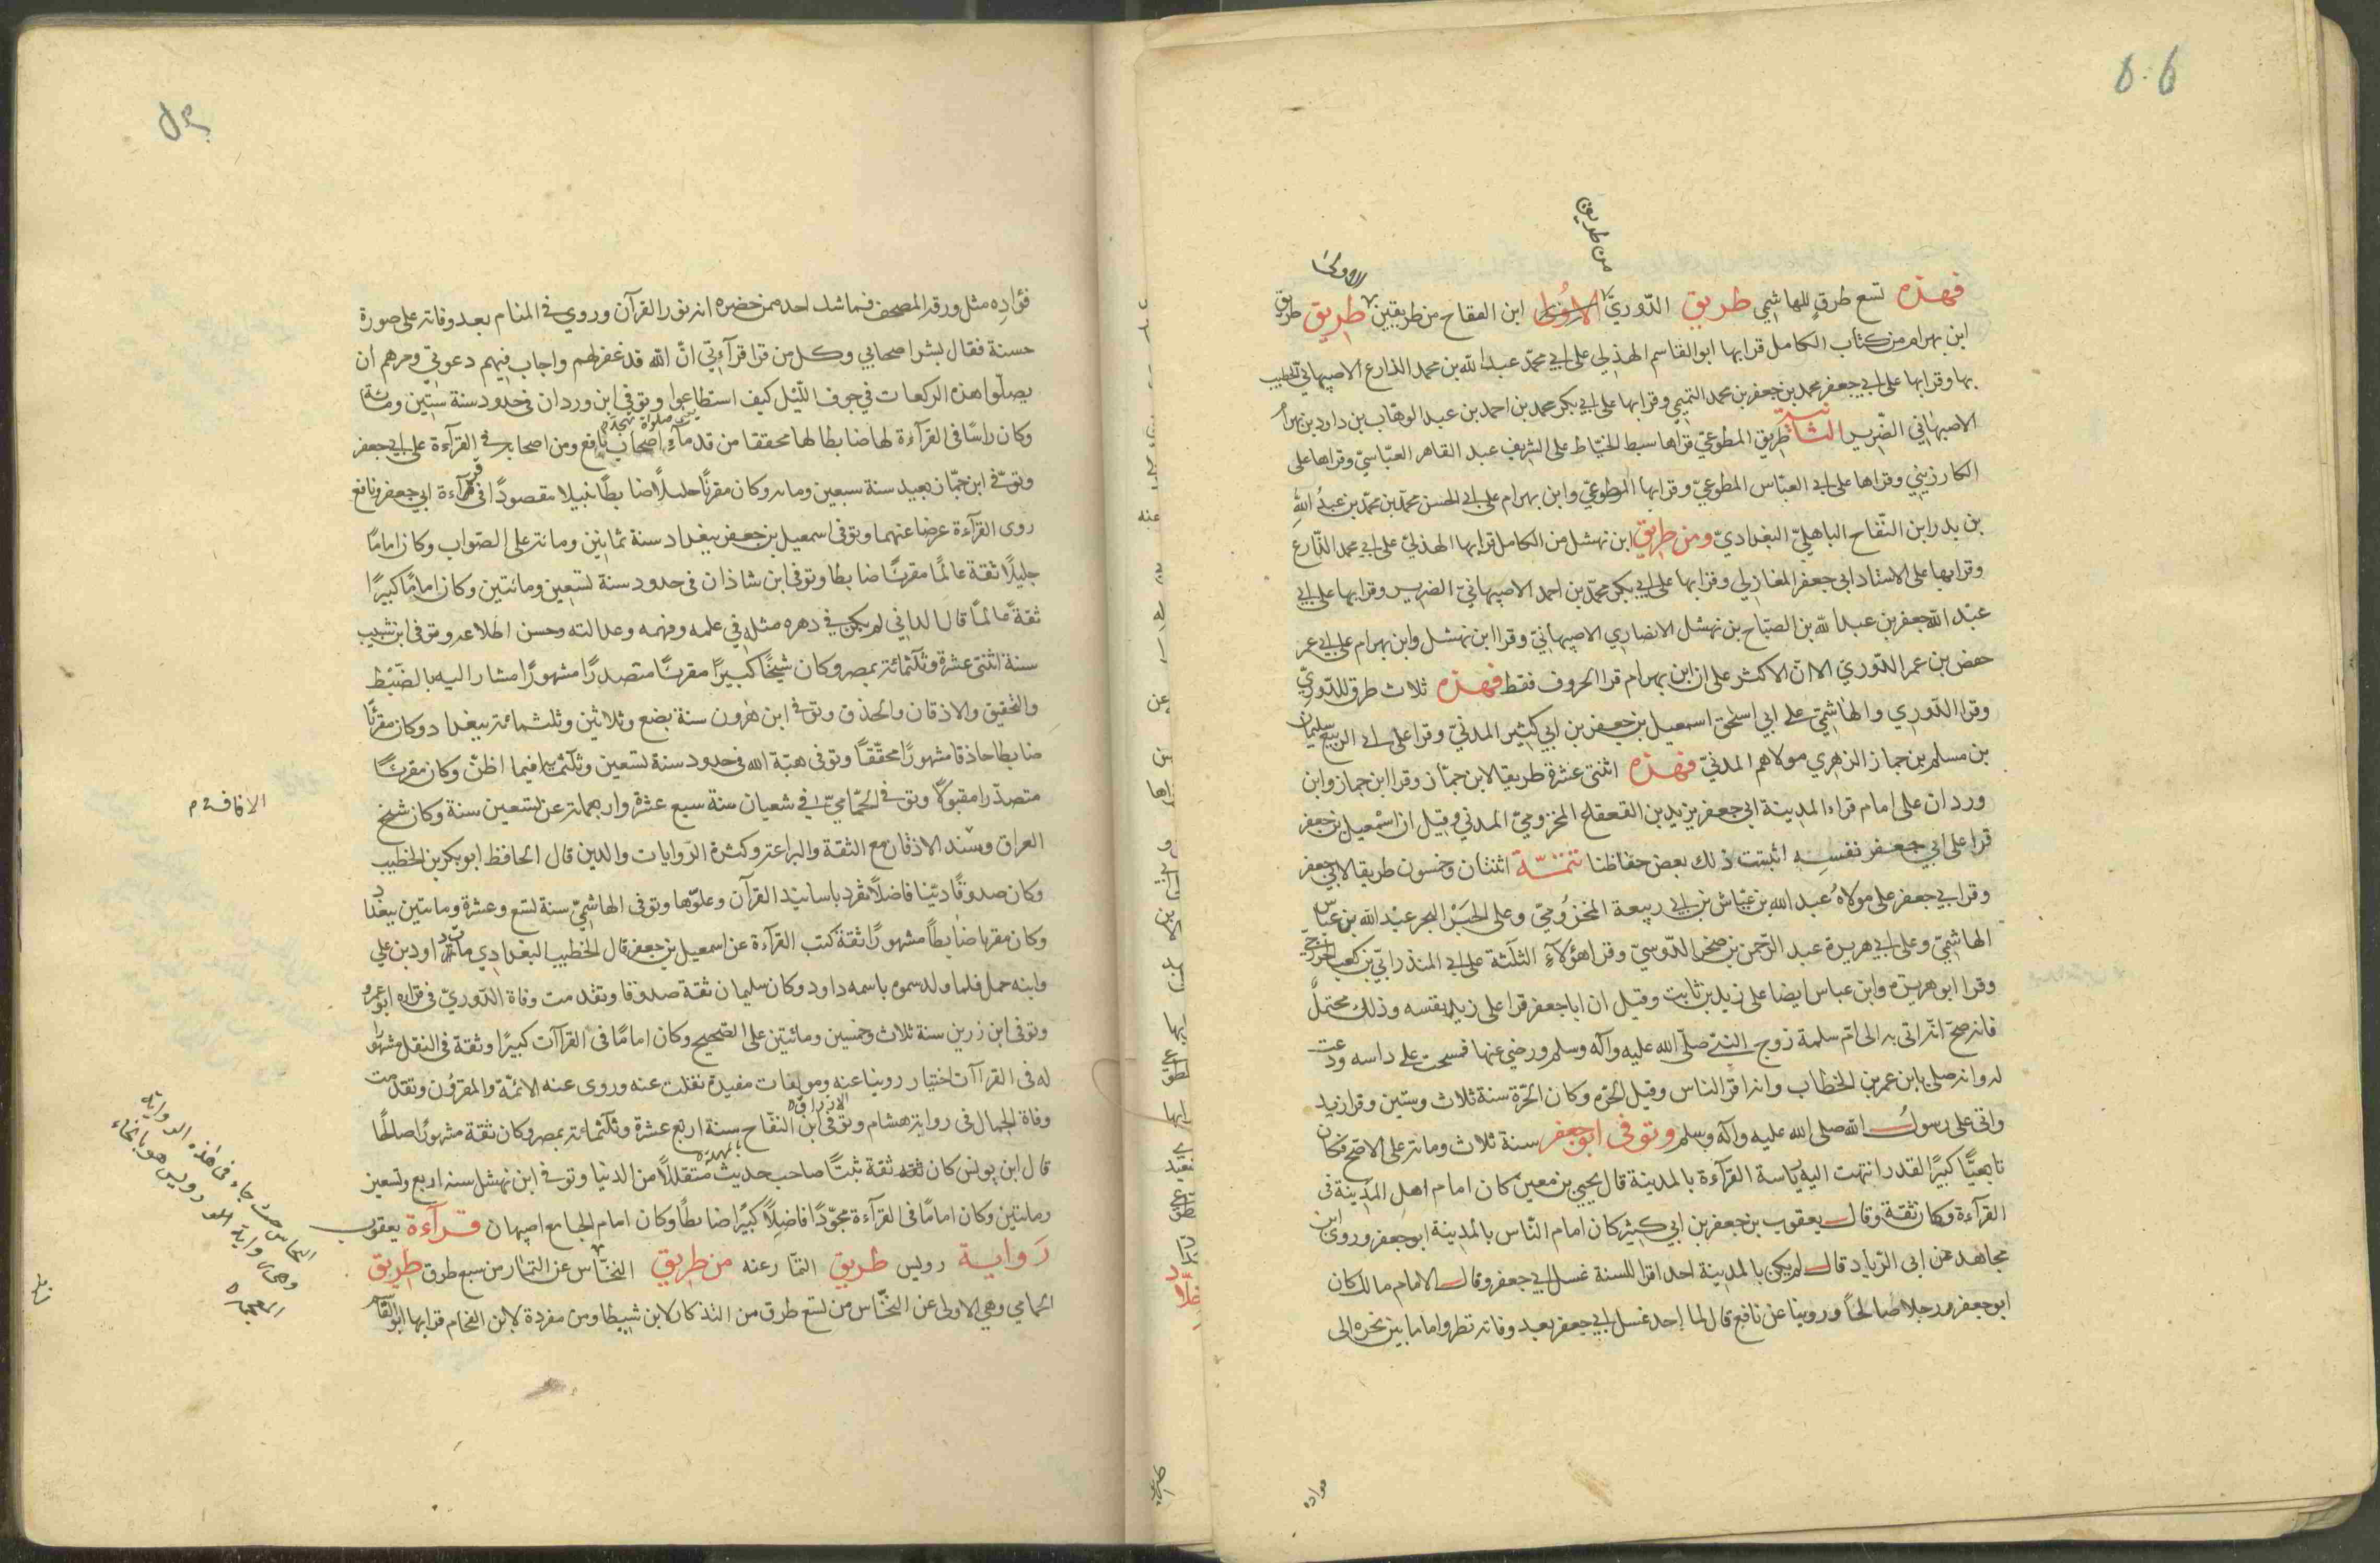 فهذه تسع طرق للهاشمي طريق الدوريّ الاولى ابن النفاح من طريقين طريق
من طريق
الاولى
ابن بهرام من كتاب الكامل قرابها ابو القاسم الهذلي على ابي محمّد عبد الله بن محمد الذارع الاصبهاني الخطيب
بها وقرا بها على ابي جعفر محمد بن جعفر بن محمد التميمي وقرا بها على ابي بكر محمد بن احمد بن عبد الوهاب بن داود بن بهرام
الاصبهاني الضّرير الثانية طريق المطوعيّ قراها سبط الخيّاط على الشريف عبد القاهر العبّاسيّ وقراها على
الكارزيني وقراها على ابي العبّاس المطوعيّ وقرا بها المطوعيّ وابن بهرام على ابي الحسن محمّد بن محمّد بن عبد الله
بن بدر ابن النّفاح الباهليّ البغداديّ ومن طريق ابن نهشل من الكامل قرابها الهذليّ على ابي محمد الذّارع
وقرا بها على الاستاد ابي جعفر المغازلي وقرا بها على ابي بكر محمّد بن احمد الاصبهانيّ الضرير وقرا بها على ابي
عبد الله جعفر بن عبد الله بن الصبّاح بن نهشل الانصاري الاصبهانيّ وقرا ابن نهشل وابن بهرام على ابي عمر
حفص بن عمر الدّوري الا انّ الاكثر على ان ابن بهرام قرا الحروف فقط فهذه ثلاث طرق للدّوريّ
وقرا الدّوري والهاشميّ على ابي اسحق اسمعيل بن جعفر بن ابي كثير المدنيّ وقرا على ابي الربيع سليمان
بن مسلم بن جماز الزهري مولاهم المدنيّ فهذه اثنتى عشرة طريقا لابن جمّاز وقرا ابن جماز وابن
وردان على امام قراء المدينة ابي جعفر يزيد بن القعقاع المخزوميّ المدني وقيل ان اسمعيل بن جعفر
قرا على ابي جعفر نفسه اثبتت ذلك بعض حفاظنا تتمّة اثنتان وخمسون طريقا لابي جعفر
وقرا ابي جعفر على مولاه عبد الله بن عيّاش بن ابي ربيعة المخزوميّ وعلى الحبر البحر عبد الله بن عباس
الهاشميّ وعلى ابي هريرة عبد الرّحمن بن صخر الدّوسيّ وقرا هؤلآء الثلثة على ابي المنذر ابيّ بن كعب الخزرجيّ
وقرا ابو هريرة وابن عباس ايضا على زيد بن ثابت وقيل ان ابا جعفر قرا على زيد بنفسه وذلك محتملٌ
فانه صحّ انّه اتى به الى امّ سلمة زوج النبيّ صلّى الله عليه وآله وسلم ورضي عنها فمسحت على راسه ودعت
له وانه صلى بابن عمر بن الخطاب وانه اقرا الناس وقيل الحرّة وكان الحرّة سنة ثلاث وستّين وقرا زيد
وابيّ على رسول الله صلى الله عليه وآله وسلم وتوفى ابو جعفر سنة ثلاث ومائة على الاصحّ فكان
تابعيًّا كبيرًا القدر انتهت اليه رياسة القرآءة بالمدينة قال يحيى بن معين كان امام اهل المدينة في
القرآءة وكان ثقة وقال يعقوب بن جعفر بن ابي كثير كان امام النّاس بالمدينة ابو جعفر وروى ابن
مجاهد عن ابي الزياد قال لم يكن بالمدينة احد اقرا للسنة غسل ابي جعفر وقال الامام مالك كان
ابو جعفر رجلا صالحًا وروينا عن نافع قال لما احد غسل ابي جعفر بعد وفاته نظروا ما ما بين نحره الى
فؤاده
فؤاده مثل ورقة المصحف فما شك احد ممن حضره انه نور القرآن وروي في المنام بعد وفاته على صورة
حسنة فقال بشّر اصحابي وكل من قرا قرآءتي انّ الله قد غفر لهم واجاب فيهم دعوتي ومرهم ان
يصلّوا هذه الركعات في جوف اللّيل كيف استطاعوا وتوفى ابن وردان في حدود سنة ستّين ومائة
وكان راسًا في القرآءة لها ضابطا لها محققا من قدمآء اصحاب نافع ومن اصحابه في القرآءة على ابي جعفر
وتوفي ابن جمّاز بعيد سنة سبعين ومائة وكان مقرئًا جليلًا ضابطًا نبيلا مقصودًا في قرآءة ابي جعفر ونافع
روى القرآءة عرضا عنهما وتوفى اسمعيل بن جعفر ببغداد سنة ثمانين ومائة على الصّواب وكان امامًا
جليلًا ثقة عالمًا مقرئًا ضابطا وتوفى ابن شاذان في حدود سنة تسعين ومائتين وكان امامًا كبيرًا
ثقةً عالمًا قال الداني لم يكن في دهره مثله في علمه وفهمه وعدالته وحسن اطلاعه وتوفى ابن شبيب
سنة اثنتي عشرة وثلثمائة بمصر وكان شيخًا كبيرًا مقرئًا متصدرًا مشهورًا مشارا اليه بالضّبط
والتحقيق والاذقان والحذق وتوفي ابن هرون سنة بضع وثلاثين وثلثمائة ببغداد وكان مقرئًا
ضابطا حاذقا مشهورًا محقّقًا وتوفى هبة الله في حدود سنة تسعين وثلثمائة فيما اظنّ وكان مقرئًا
متصدّرا مقبولًا وتوفي الحمّاميّ في شعبان سنة سبع عشرة واربعمائة عن تسعين سنة وكان شيخ
العراق ومسند الاذقان مع الثقة والبراعة وكثرة الروايات والدين قال الحافظ ابو بكر بن الخطيب
وكان صدوقًا ديّنا فاضلًا تفرد باسانيد القرآن وعلوّها وتوفى الهاشميّ سنة تسع وعشرة ومائتين ببغداد
وكان مقرئا ضابطًا مشهورًا ثقة كتب القرآءة عن اسمعيل بن جعفر قال الخطيب البغدادي مات داود بن علي
وابنه حمل فلما ولد سموه باسمه داود وكان سليمان ثقة صدوقا وتقدمت وفاة الدّوريّ في قرآءة ابو عمرو
وتوفى ابن رزين سنة ثلاث وخمسين ومائتين على الصّحيح وكان امامًا في القراآت كبيرًا وثقة في النقل مشهورا
له في القراآت اختيار روينا عنه ومولفات مفيدة نقلت عنه وروى عنه الائمّة والمقرؤن وتقدمت
وفاة الجمال في رواية هشام وتوفى ابن النفّاح سنة اربع عشرة وثلثمائة بمصر وكان ثقة مشهورًا صالحًا
قال ابن يونس كان ثقة ثبتًا صاحب حديث متقللًا من الدنيا وتوفي ابن نهشل سنة اربع وتسعين
ومائتين وكان امامًا في القرآءة مجوّدًا فاضلًا كبيرًا ضابطًا وكان امام الجامع اصبهان قرآءة يعقوب
رواية رويس طريق التمّار عنه من طريق النخّاس عن التمار من سبع طرق طريق
الحمامي وهي الاولى عن النخّاس من تسع طرق من التذكار لابن شيطا ومن مفردة لابن الفحام قرابها ابو القاسم
الاتقان م
النحاس حيث جاء في هذه الرواية
وهي رواية رويس هو بالخاء
المعجمة